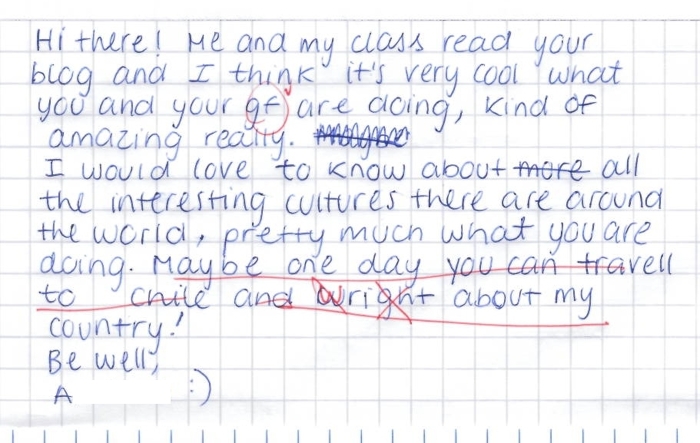 Hi there! Me and my class read your
blog and I think it's very cool what
you and your gf are doing, kind of
amazing really.
I would love to know about more all
the interesting cultures there are around
the world, pretty much what you are
doing. Maybe one day you can travell
to Chile and wright about my
country!
Be well,
A :)